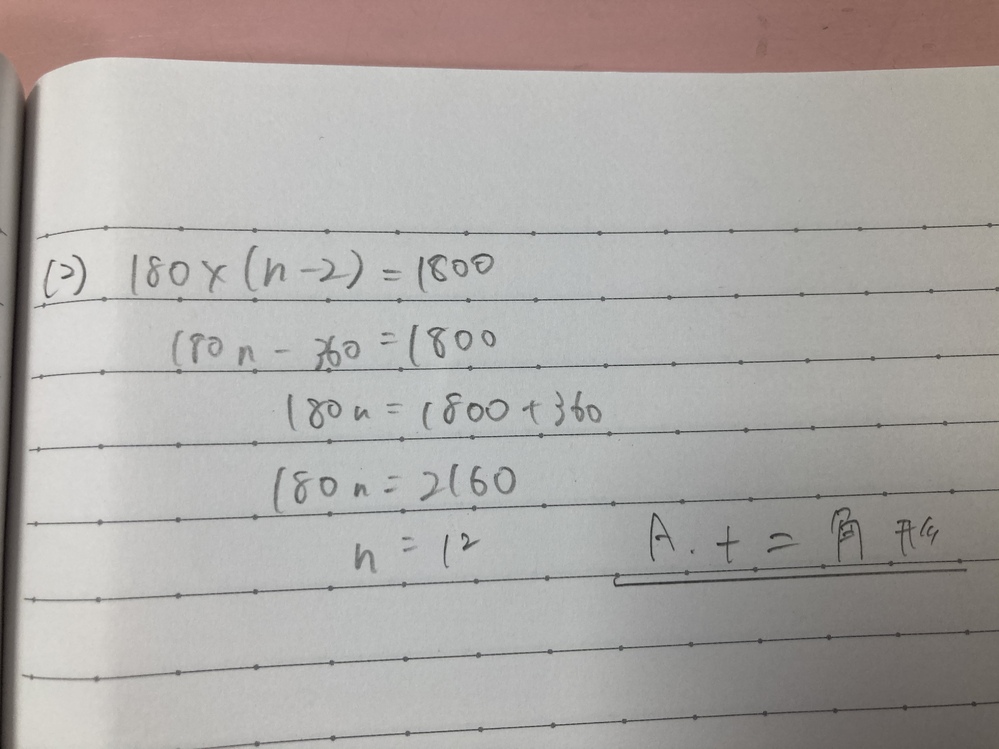 (2) 180×(n-2)=1800
180n-360=1800
180n=1800+360
180n=2160
n=12
A. 十二角形